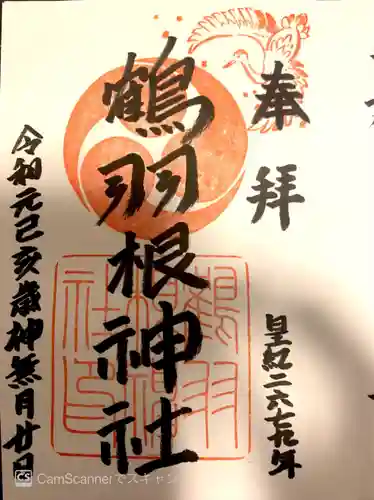 奉拝
皇紀二六七九年
鶴羽根神社
令和元己亥歳神無月廿日
CS CamScannerでスキャン